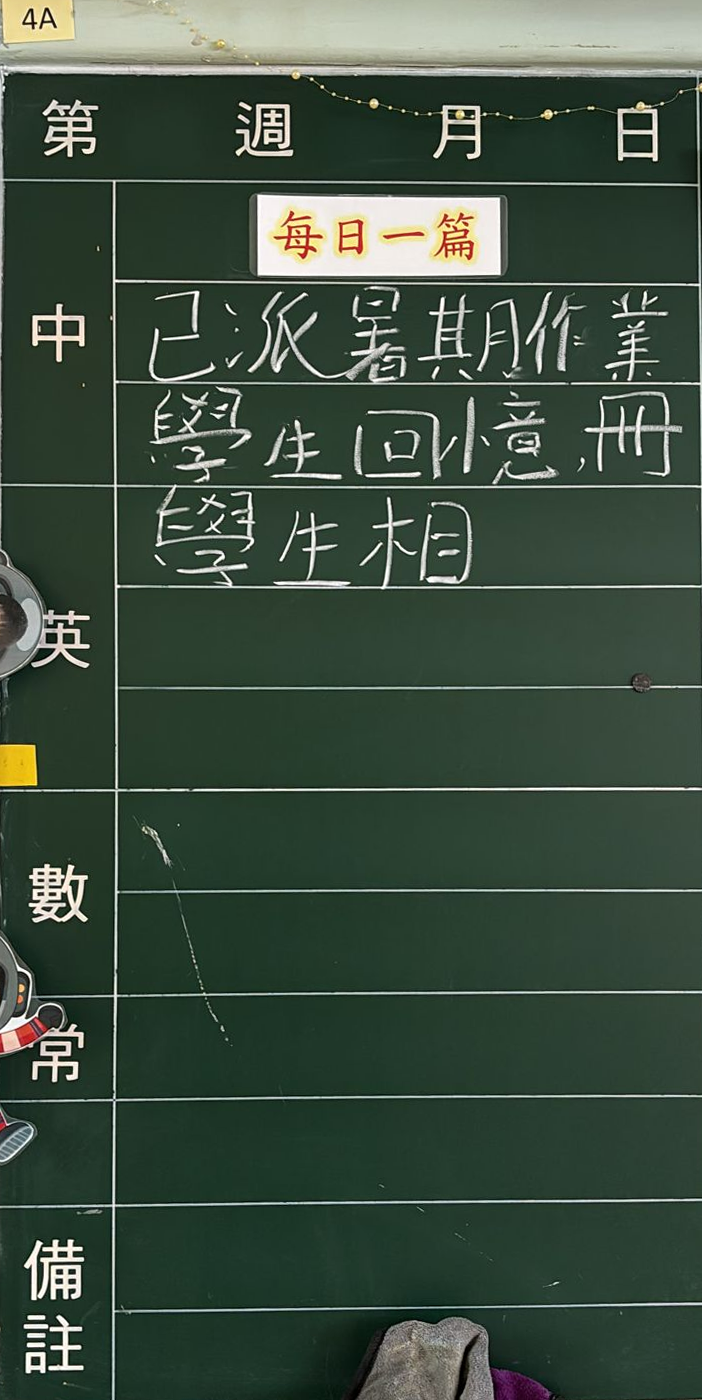 4A
第 週 月 日
每日一篇
中
已派暑期作業
學生回憶,冊
學生相
英
數
常
備註